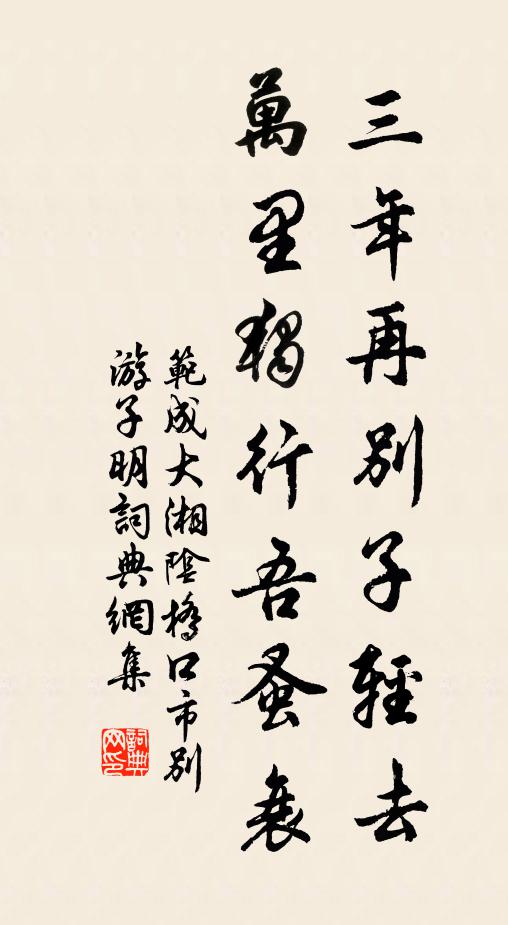 三年再別子輕去
萬里獨行吾蚤衰
範成大湘陰橋口市別
游子明詞典網集
詞典網印